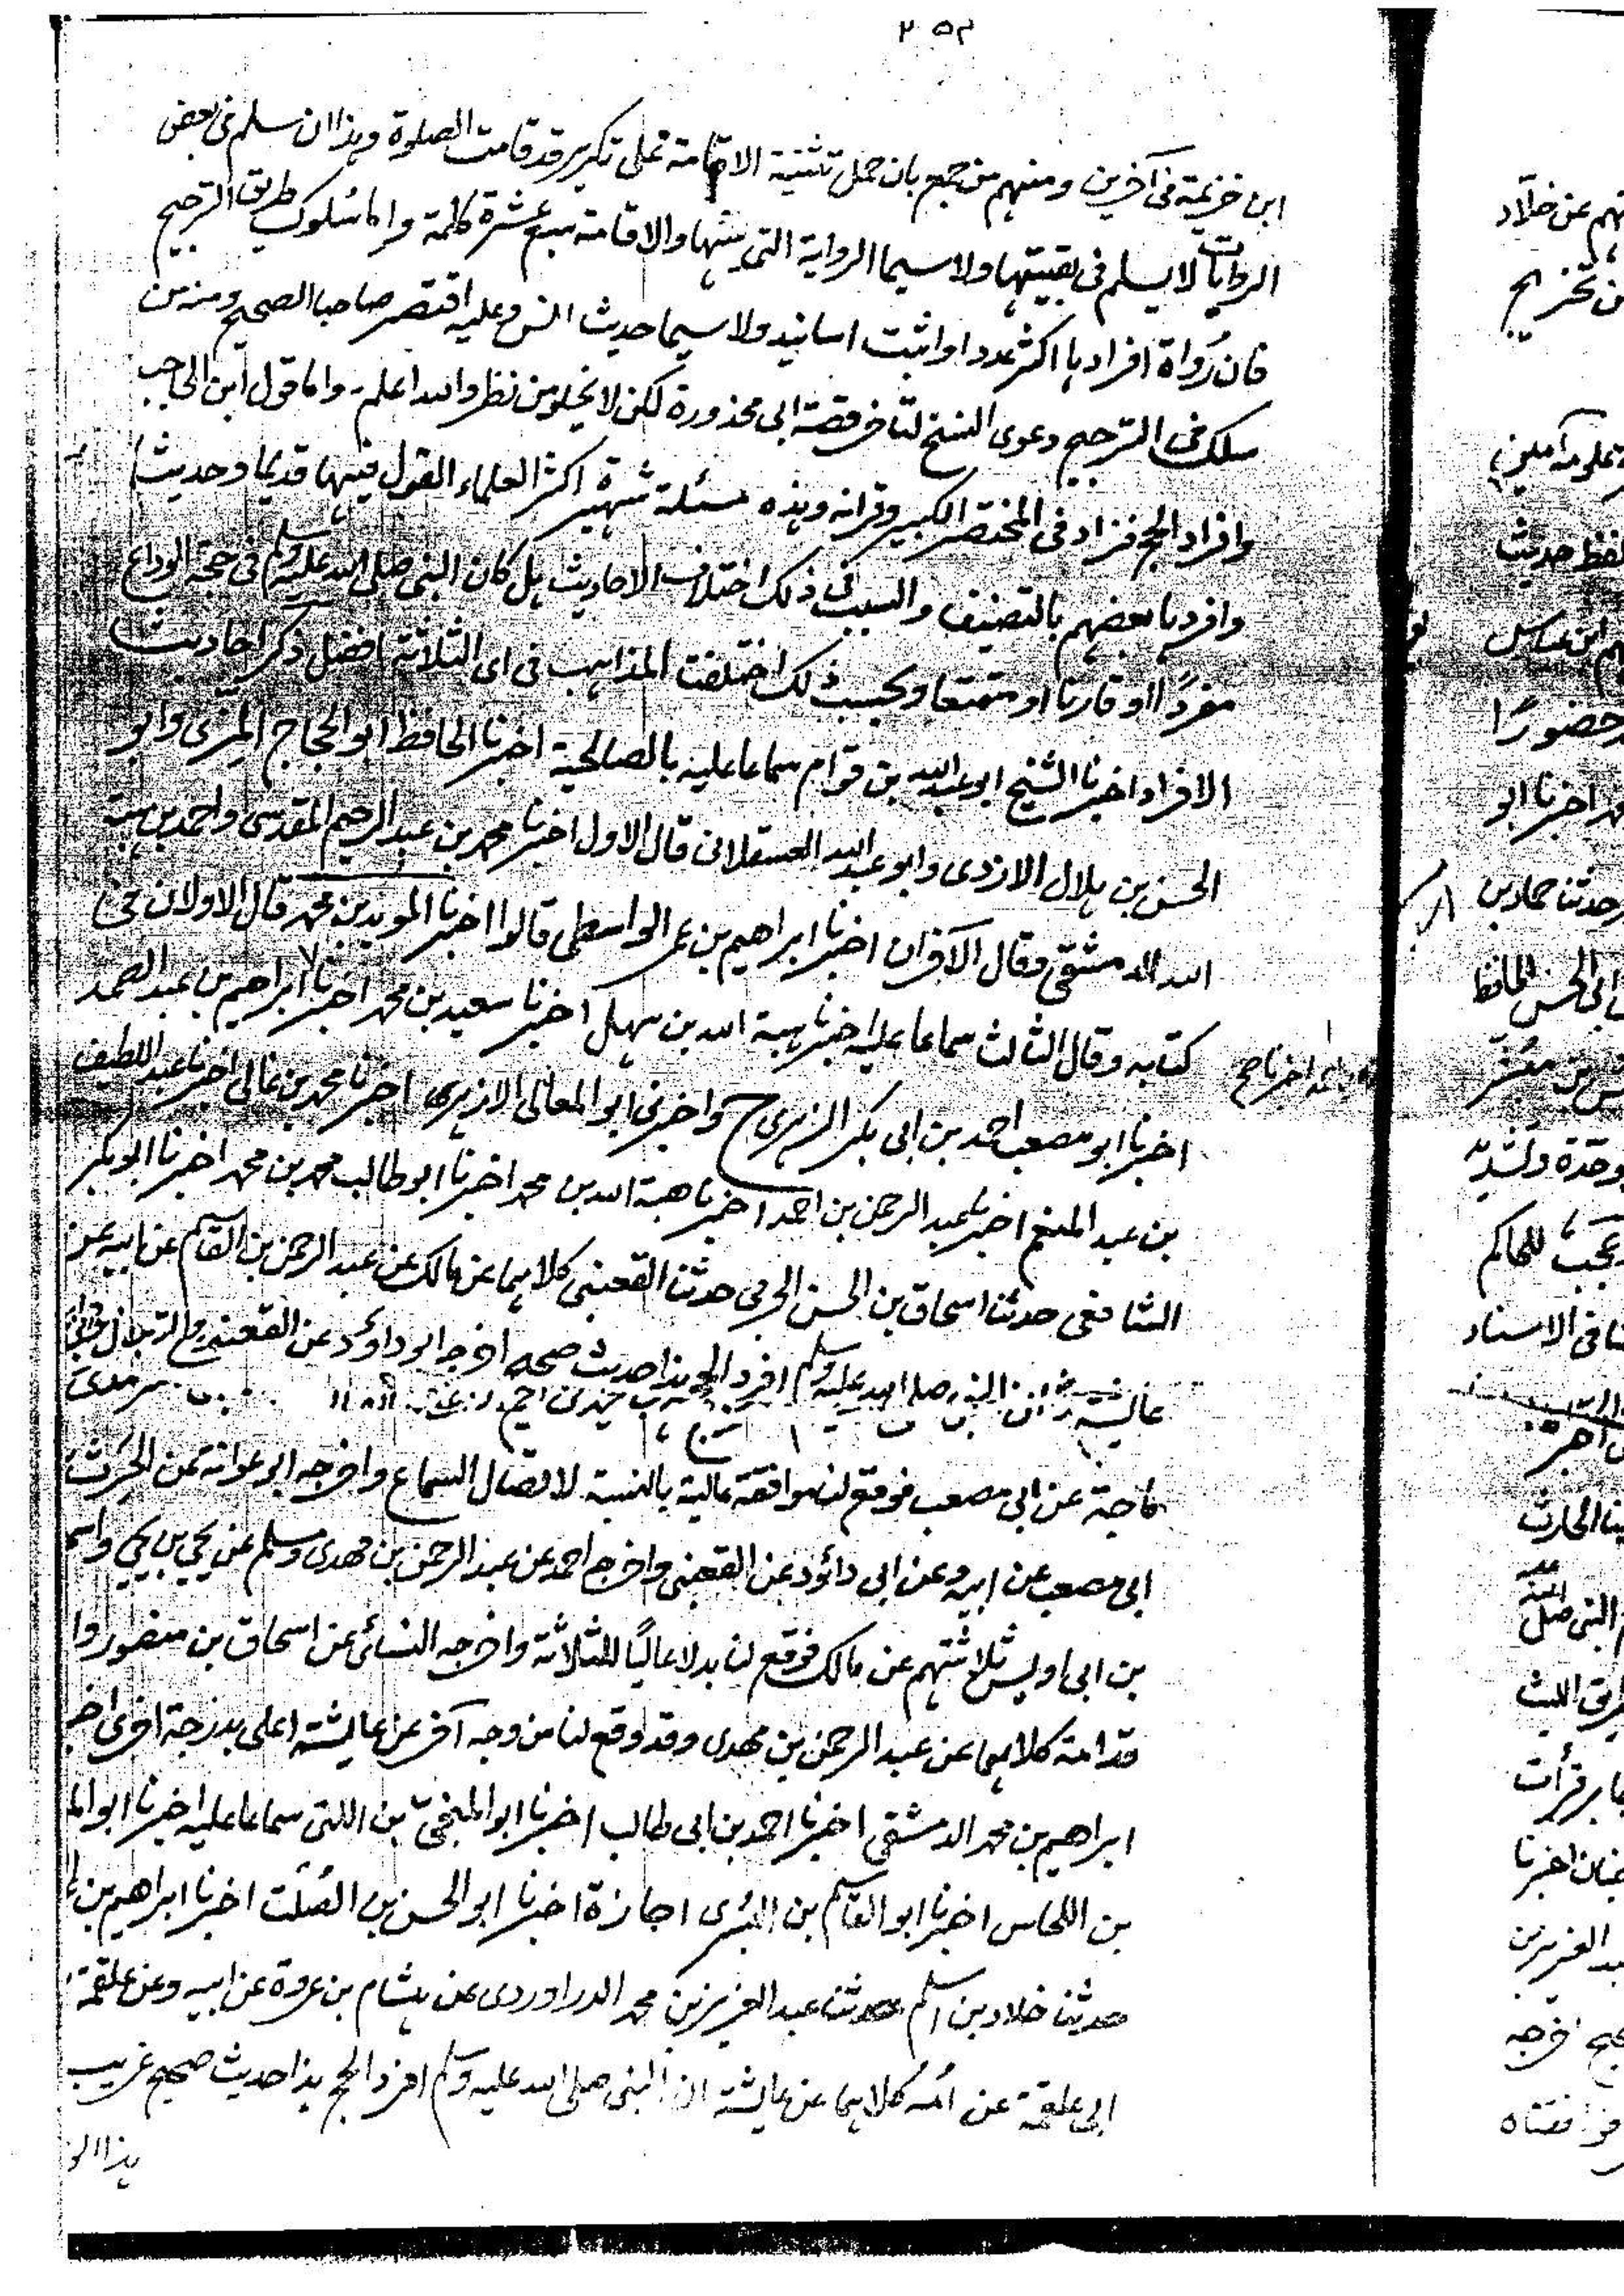 ۲۵۳
ابن خزيمة في آخرين ومنهم من جمع بان حمل تثنية الاقامة على تكرير قد قامت الصلوة وهذا ان سلم في بعض
الروايات لا يسلم في بقيتها ولا سيما الرواية التي فيها والاقامة سبع عشرة كلمة واما سلوك طريق الترجيح
فان رواة افرادها اكثر عددا واثبت اسانيد ولا سيما حديث انس وعليه اقتصر صاحبا الصحيح ومنه من
سلك في الترجيح دعوى النسخ لتأخر قصة ابي محذورة لكن لا يخلو من نظر والله اعلم واما قول ابن الحاجب
وافراد الحج فزاد في المختصر الكبير وقرانه وهذه مسئلة شهيرة اكثر العلماء القول فيها قديما وحديثا
وافردها بعضهم بالتصنيف والسبب في ذلك اختلاف الاحاديث هل كان النبي صلى الله عليه وسلم في حجة الوداع
مفردًا او قارنا او متمتعا وبحسب ذلك اختلفت المذاهب في اى الثلاثة افضل ذكر احاديث
الافراد اخبرنا الشيخ ابو عبد الله بن قوام سماعا عليه بالصالحية اخبرنا الحافظ ابو الحجاج المزى وابو
الحسن بن هلال الازدى وابو عبد الله العسقلانى قال الاول اخبرنا محمد بن عبد الرحيم المقدسى واحمد بن هبة
الله الدمشقى وقال الآخران اخبرنا ابراهيم بن عمر الواسطى قالوا اخبرنا المويد بن محمد قال الاولان في
كتابه وقال الثالث سماعا عليه اخبرنا هبة الله بن سهل اخبرنا سعيد بن محمد اخبرنا ابراهيم بن عبد الصمد
اخبرنا ابو مصعب احمد بن ابى بكر الزهرى ح واخبرنى ابو المعالى الازهرى اخبرنا محمد بن غالى اخبرنا عبد اللطيف
بن عبد المنعم اخبرنا عبد الرحمن بن احمد اخبرنا هبة الله بن محمد اخبرنا ابو طالب محمد بن محمد اخبرنا ابو بكر
الشافعى حدثنا اسحاق بن الحسن الحربى حدثنا القعنبى كلاهما عن مالك عن عبد الرحمن بن القاسم عن ابيه عن
عايشة ان النبى صلى الله عليه وسلم افرد الحج هذا حديث صحيح اخرجه ابو داود عن القعنبى
ماجة عن ابى مصعب فوقع لنا موافقة عالية بالنسبة لاتصال السماع واخرجه ابو عوانة عن الحرث
ابى مصعب عن ابيه وعن ابى داؤد عن القعنبى واخرج احمد عن عبد الرحمن بن مهدى ومسلم عن يحيى بن يحيى واسم
بن ابى اويس ثلاثتهم عن مالك فوقع لنا بدلا عاليًا للثلاثة واخرجه النسائى عن اسحاق بن منصور وا
قدامة كلاهما عن عبد الرحمن بن مهدى وقد وقع لنا من وجه آخر عن عايشة اعلى بدرجة اخرى اخ
ابراهيم بن محمد الدمشقى اخبرنا احمد بن ابى طالب اخبرنا ابو المنجى بن اللتى سماعا عليه اخبرنا ابو الم
بن اللحاس اخبرنا ابو القاسم بن البسرى اجازة اخبرنا ابو الحسن بن الصلت اخبرنا ابراهيم بن
حدثنا خلاد بن اسلم حدثنا عبد العزيز بن محمد الدراوردى عن هشام بن عروة عن ابيه وعن علقمة
ابى علقمة عن امه كلاهما عن عايشة ان النبى صلى الله عليه وسلم افرد الحج هذا حديث صحيح غريب
هذا الو
هم عن خلاد
ن تخريج
لفظ حديث
ابن عباس
حضورًا
اخبرنا ابو
حدثنا حماد بن
ابى الحسن الحافظ
للحاكم
فى الاسناد
الحارث
النبى صلى
الليث
قرأت
اخبرنا
العزيز بن
اخرجه